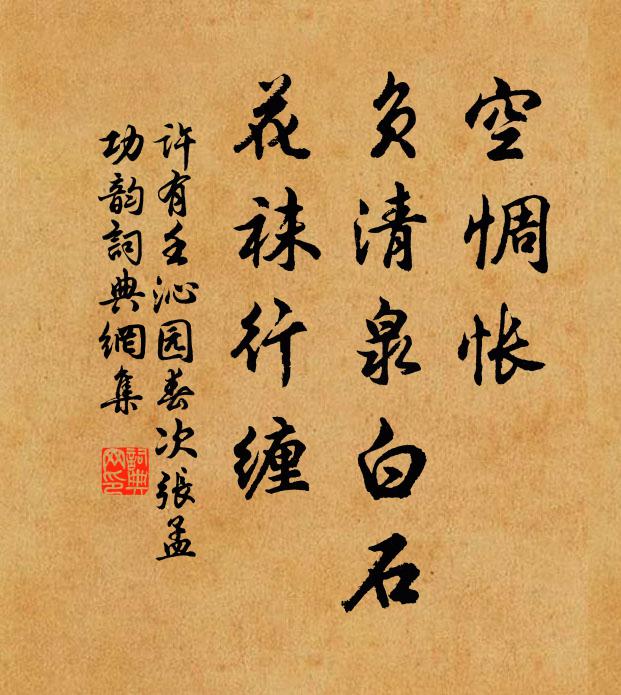 空惆怅
负清泉白石
花袜行缠
许有壬沁园春次张孟
功韵词典网集
词典网印